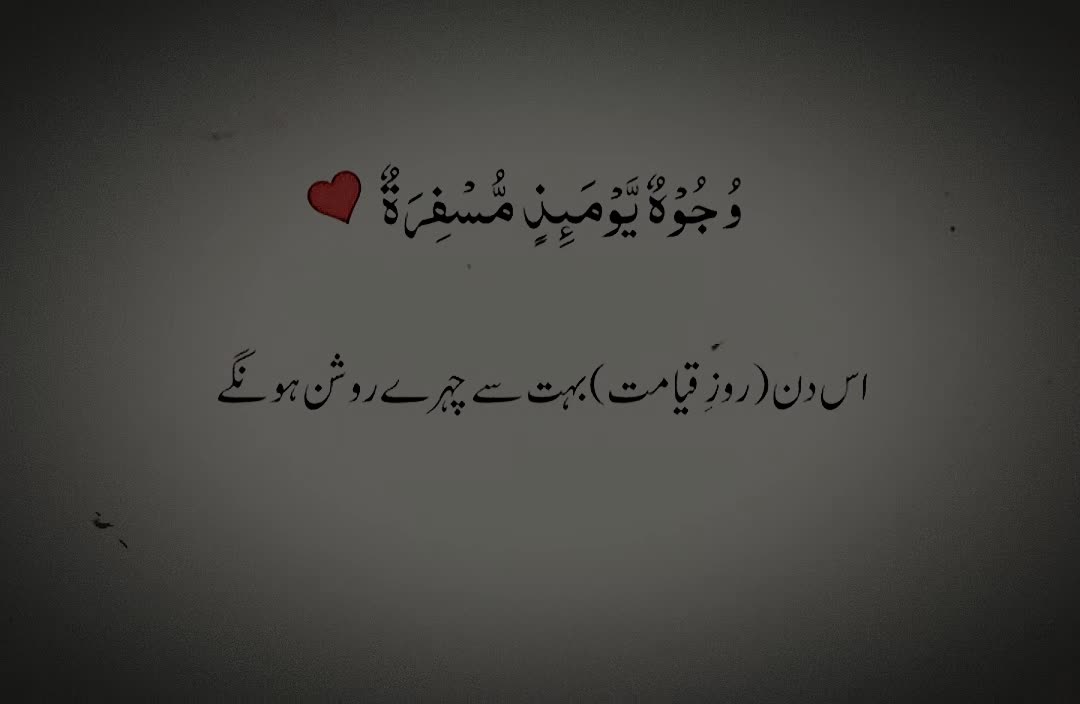 وُجُوْهٌ يَّوْمَىِٕذٍ مُّسْفِرَةٌ ❤
اس دن (روزِ قیامت) بہت سے چہرے روشن ہونگے